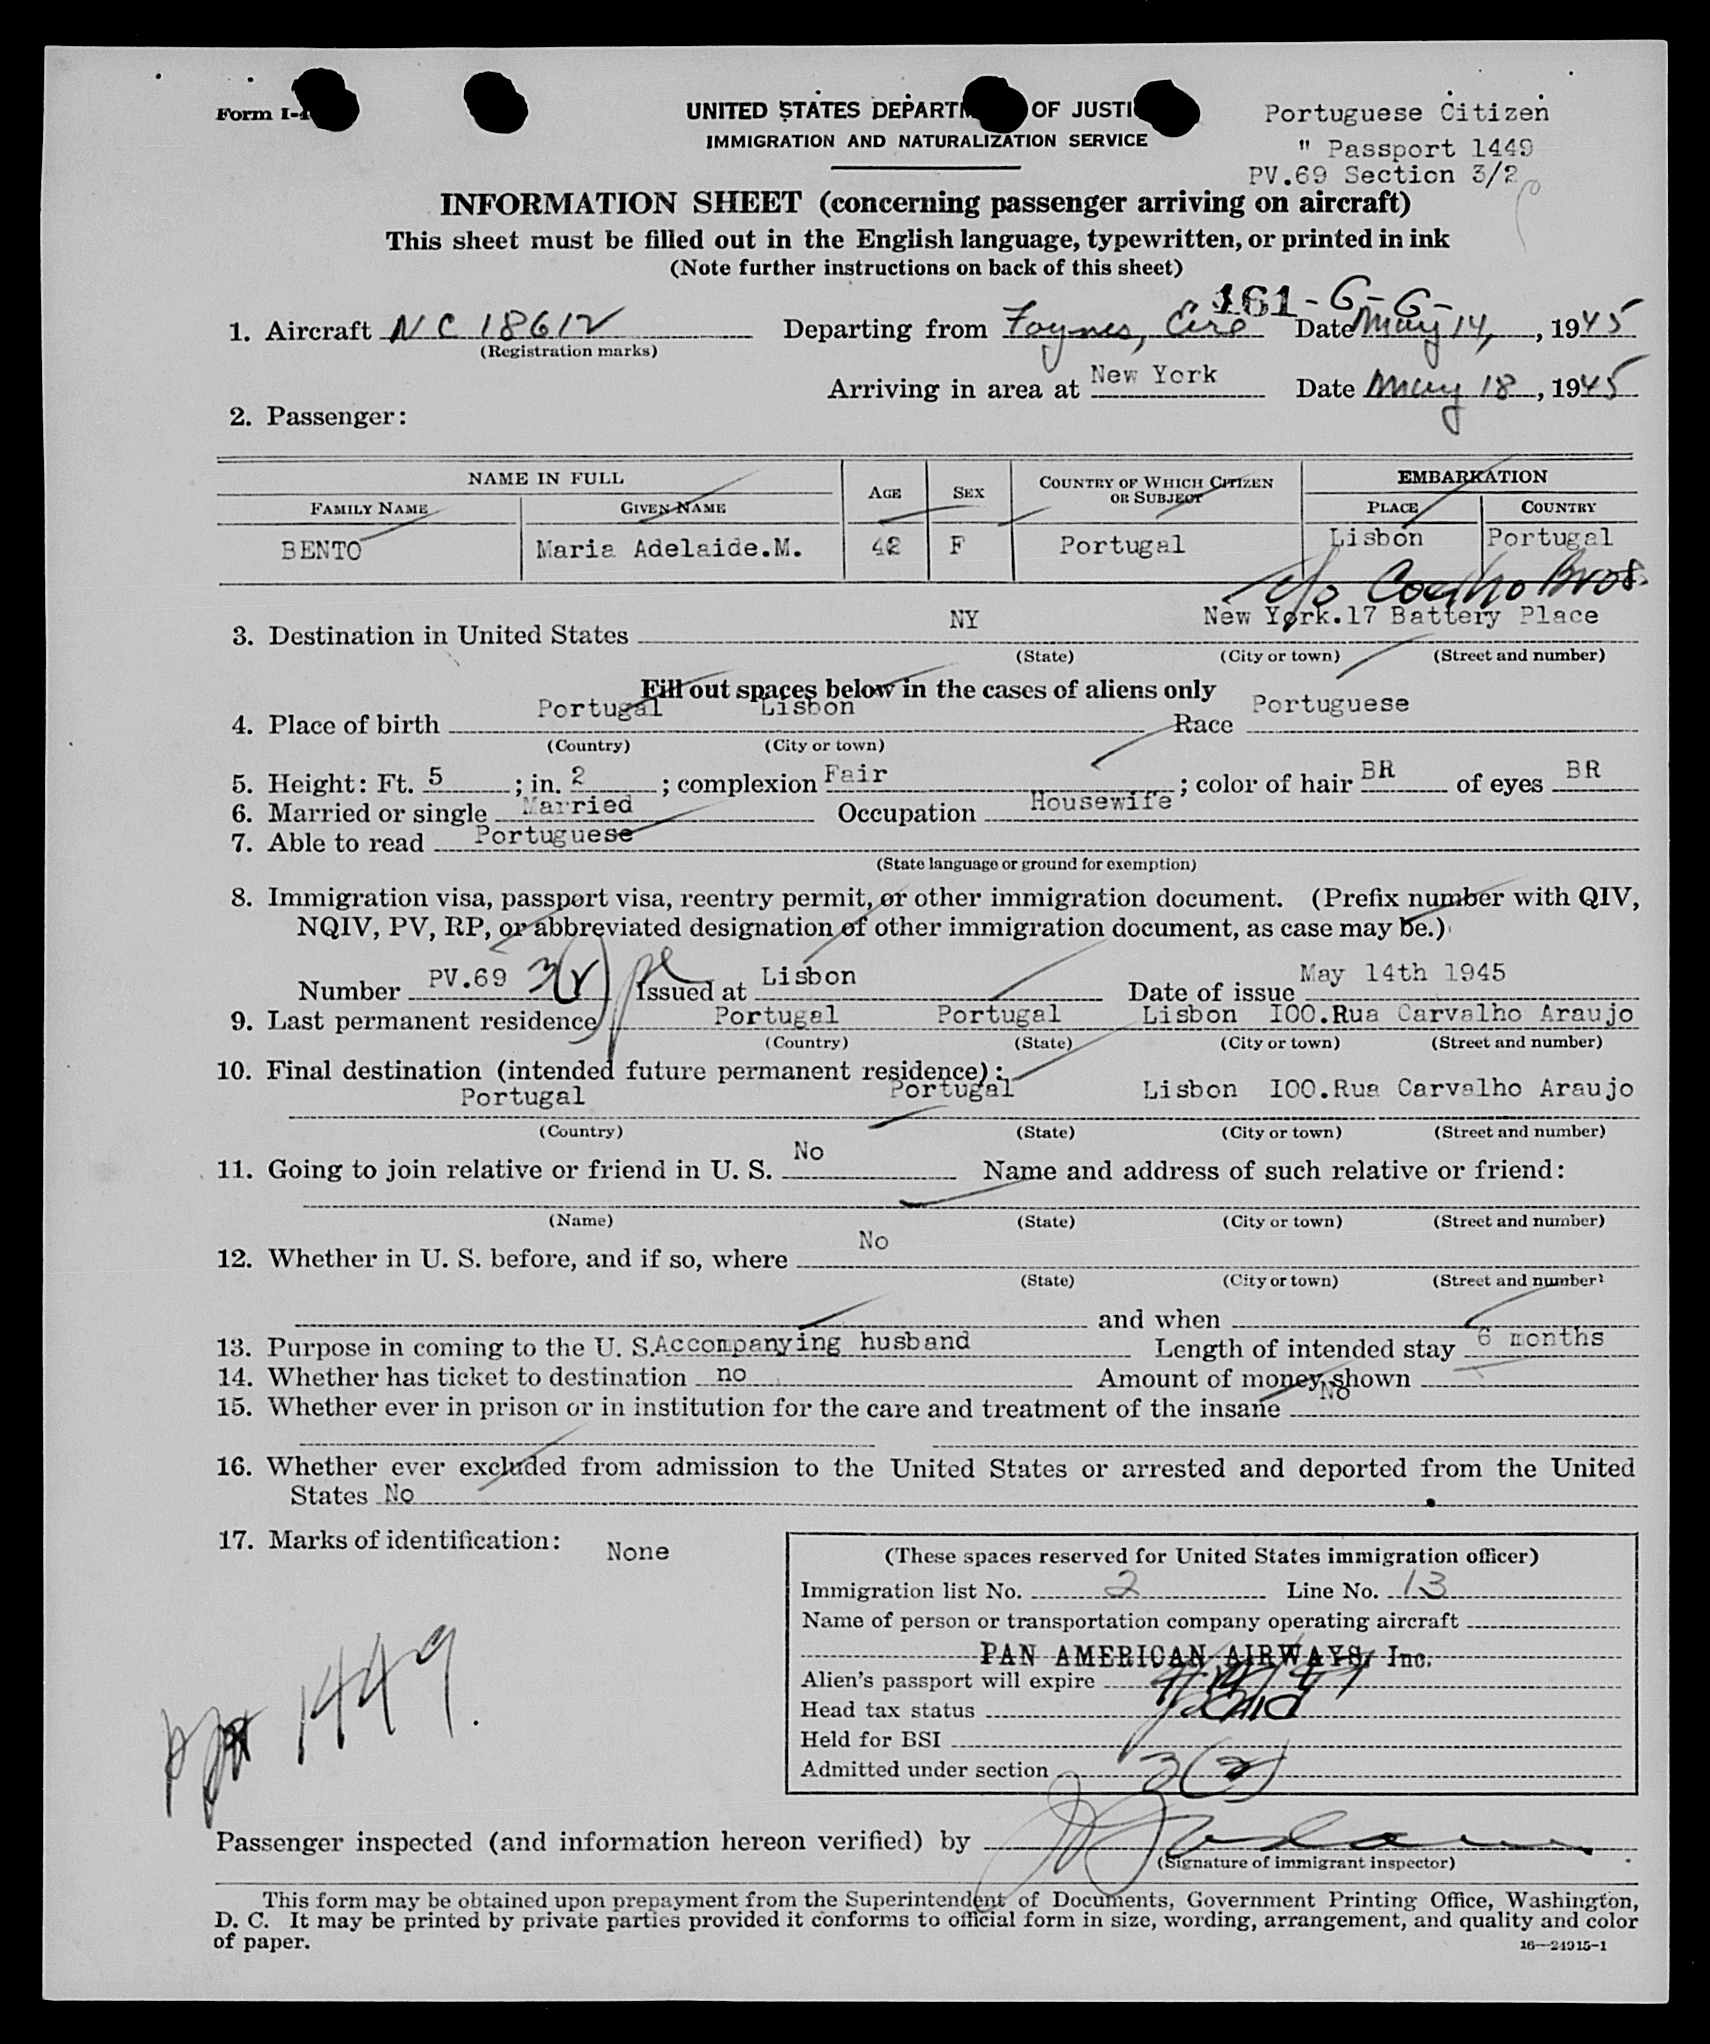 Form I-
UNITED STATES DEPARTM OF JUSTI
IMMIGRATION AND NATURALIZATION SERVICE
Portuguese Citizen
" Passport 1449
PV.69 Section 3/2
INFORMATION SHEET (concerning passenger arriving on aircraft)
This sheet must be filled out in the English language, typewritten, or printed in ink
(Note further instructions on back of this sheet)
161-G-G-
1. Aircraft NC 18612 Departing from Foynes, Eire Date May 14, , 1945
(Registration marks)
Arriving in area at New York Date May 18 , 1945
2. Passenger:
NAME IN FULL AGE SEX COUNTRY OF WHICH CITIZEN OR SUBJECT EMBARKATION
FAMILY NAME GIVEN NAME PLACE COUNTRY
BENTO Maria Adelaide.M. 42 F Portugal Lisbon Portugal
c/o Coelho Bros.
3. Destination in United States NY New York.17 Battery Place
(State) (City or town) (Street and number)
Fill out spaces below in the cases of aliens only
4. Place of birth Portugal Lisbon Race Portuguese
(Country) (City or town)
5. Height: Ft. 5 ; in. 2 ; complexion Fair ; color of hair BR of eyes BR
6. Married or single Married Occupation Housewife
7. Able to read Portuguese
(State language or ground for exemption)
8. Immigration visa, passport visa, reentry permit, or other immigration document. (Prefix number with QIV,
NQIV, PV, RP, or abbreviated designation of other immigration document, as case may be.)
Number PV.69 3(2) Issued at Lisbon Date of issue May 14th 1945
9. Last permanent residence Portugal Portugal Lisbon I00.Rua Carvalho Araujo
(Country) (State) (City or town) (Street and number)
10. Final destination (intended future permanent residence):
Portugal Portugal Lisbon I00.Rua Carvalho Araujo
(Country) (State) (City or town) (Street and number)
11. Going to join relative or friend in U. S. No Name and address of such relative or friend:
(Name) (State) (City or town) (Street and number)
12. Whether in U. S. before, and if so, where No
(State) (City or town) (Street and number)
and when
13. Purpose in coming to the U. S. Accompanying husband Length of intended stay 6 months
14. Whether has ticket to destination no Amount of money shown
15. Whether ever in prison or in institution for the care and treatment of the insane No
16. Whether ever excluded from admission to the United States or arrested and deported from the United
States No
17. Marks of identification: None
(These spaces reserved for United States immigration officer)
Immigration list No. 2 Line No. 13
Name of person or transportation company operating aircraft
PAN AMERICAN AIRWAYS, Inc.
Alien's passport will expire
Head tax status paid
Held for BSI
Admitted under section 3(2)
ppt 1449.
Passenger inspected (and information hereon verified) by
(Signature of immigrant inspector)
This form may be obtained upon prepayment from the Superintendent of Documents, Government Printing Office, Washington,
D. C. It may be printed by private parties provided it conforms to official form in size, wording, arrangement, and quality and color
of paper.
16—24915-1